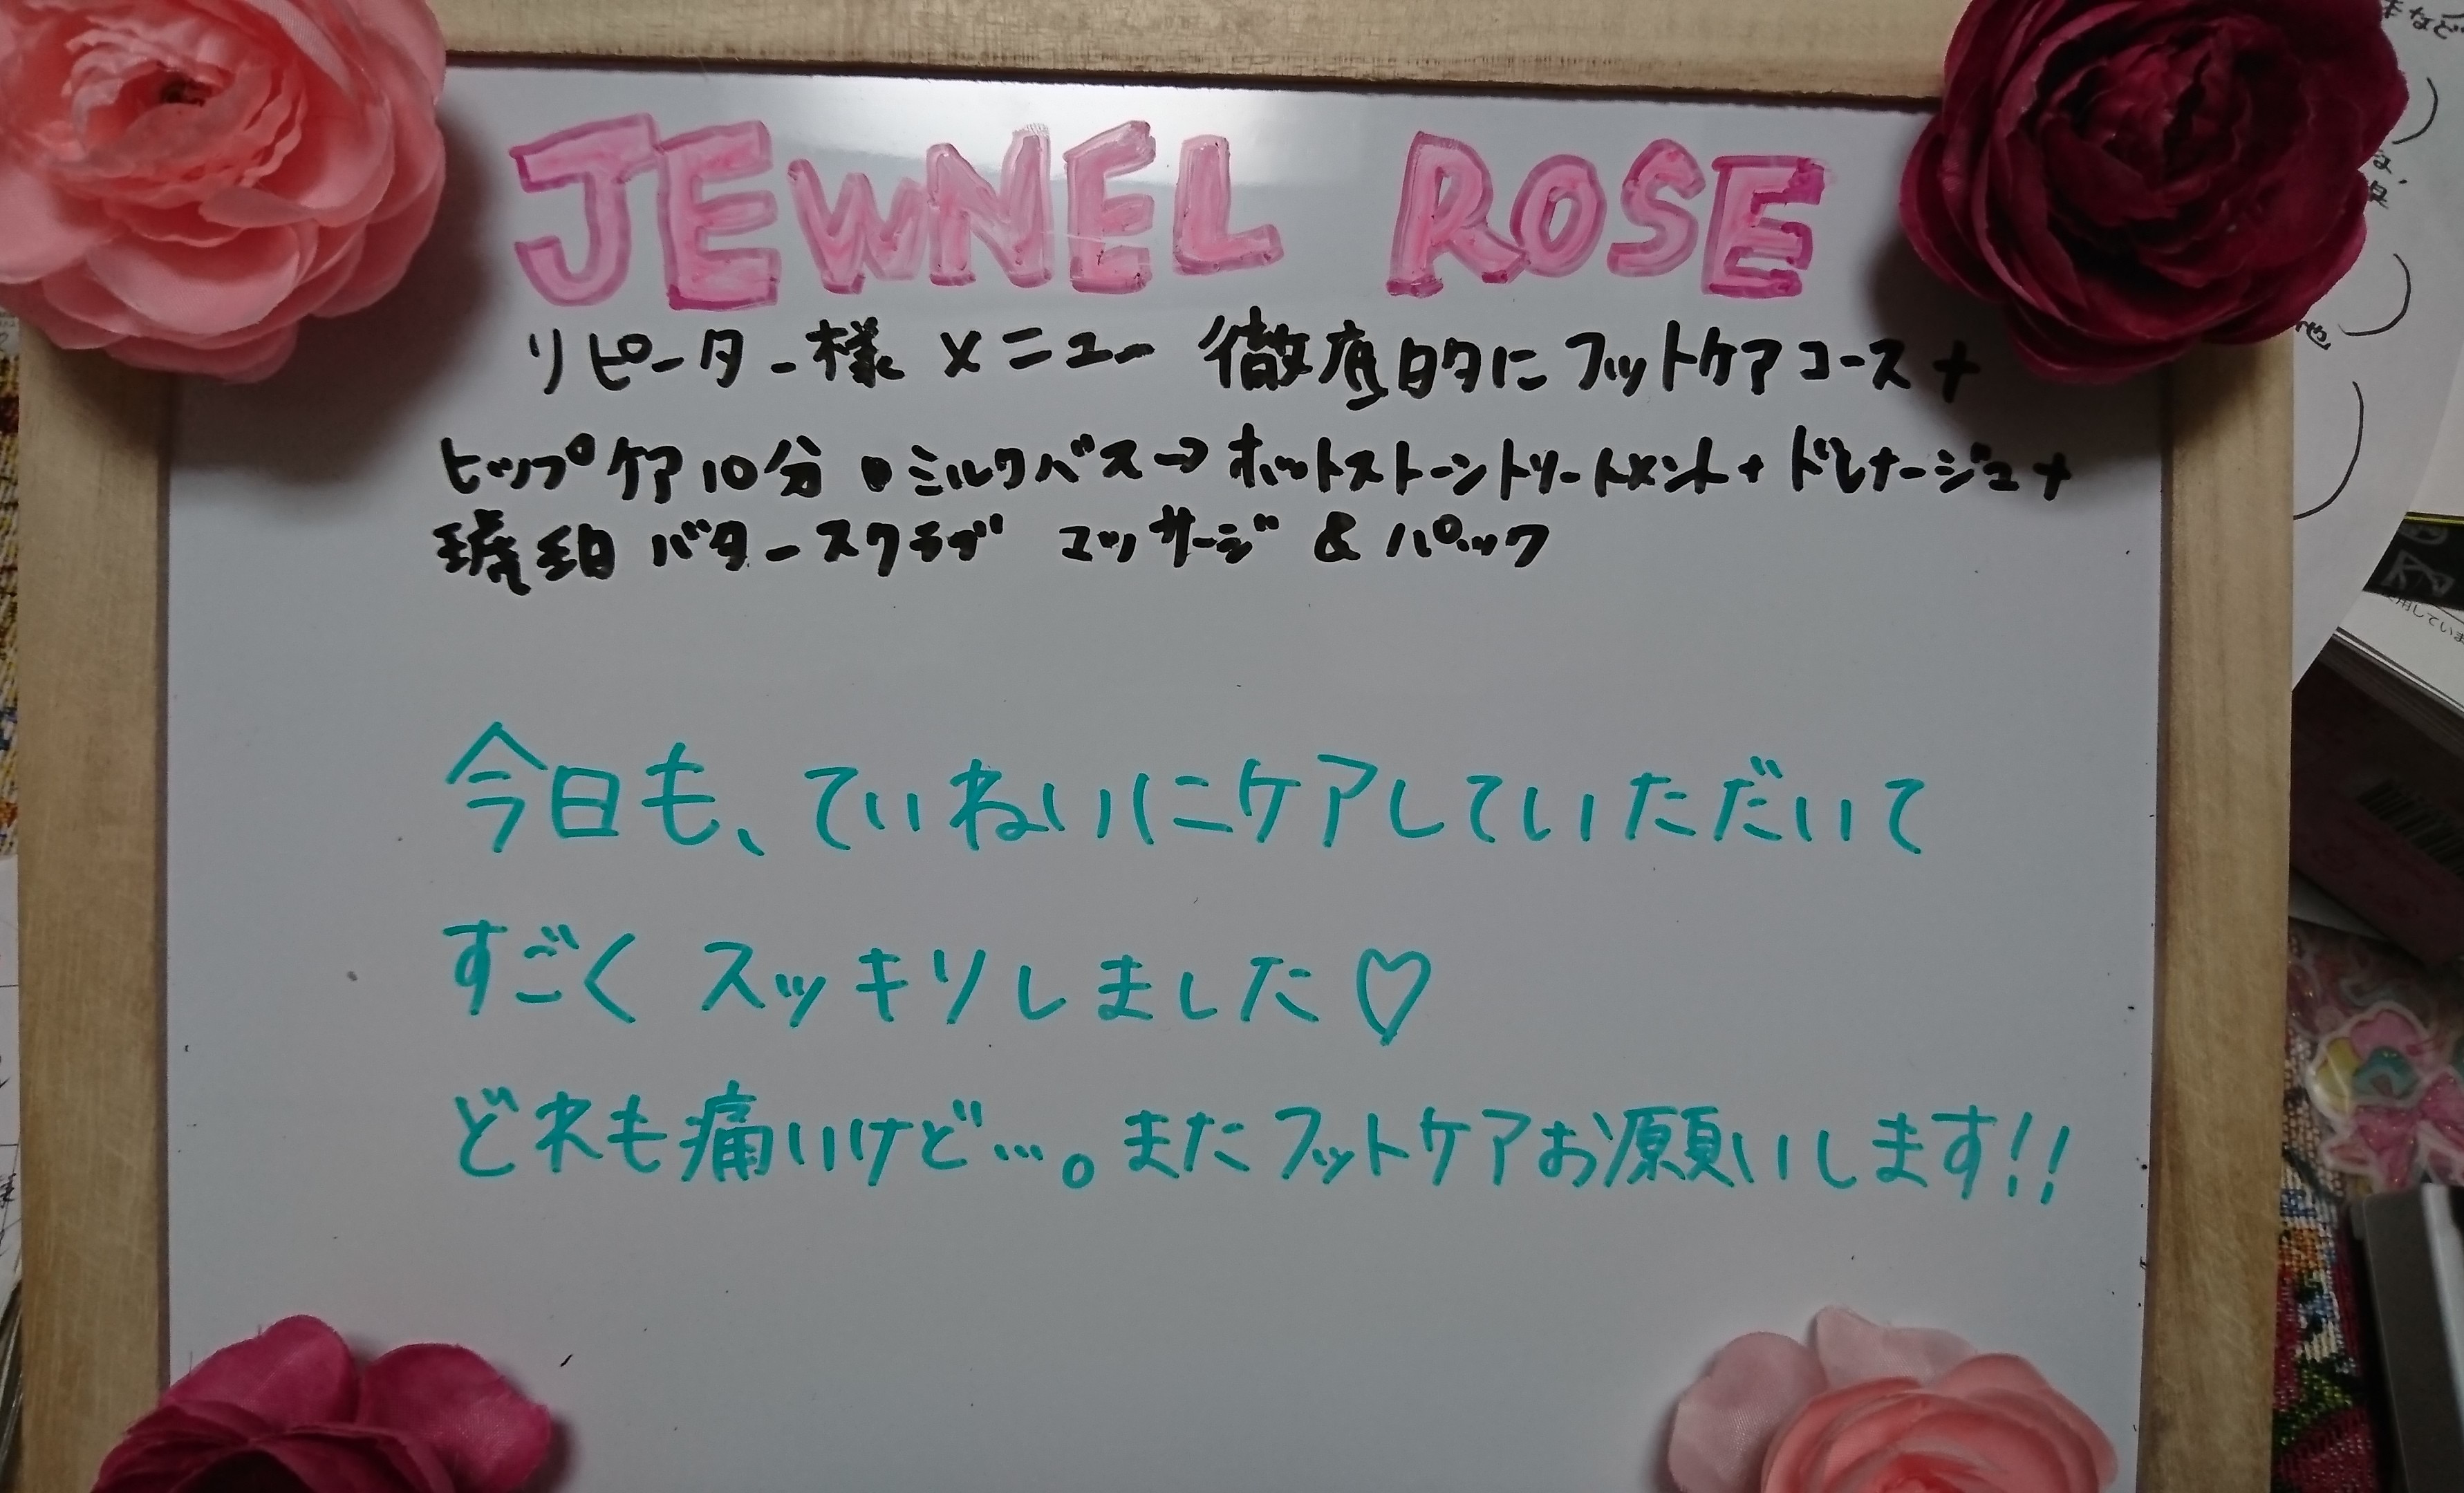 JEWNEL ROSE
リピーター様 メニュー 徹底的に フットケアコース +
ヒップケア10分 ●ミルクバス→ホットストーントリートメント+ドレナージュ+
琥珀 バタースクラブ マッサージ & パック
今日も、ていねいにケアしていただいて
すごく スッキリしました♡
どれも痛いけど…。またフットケアお願いします!!